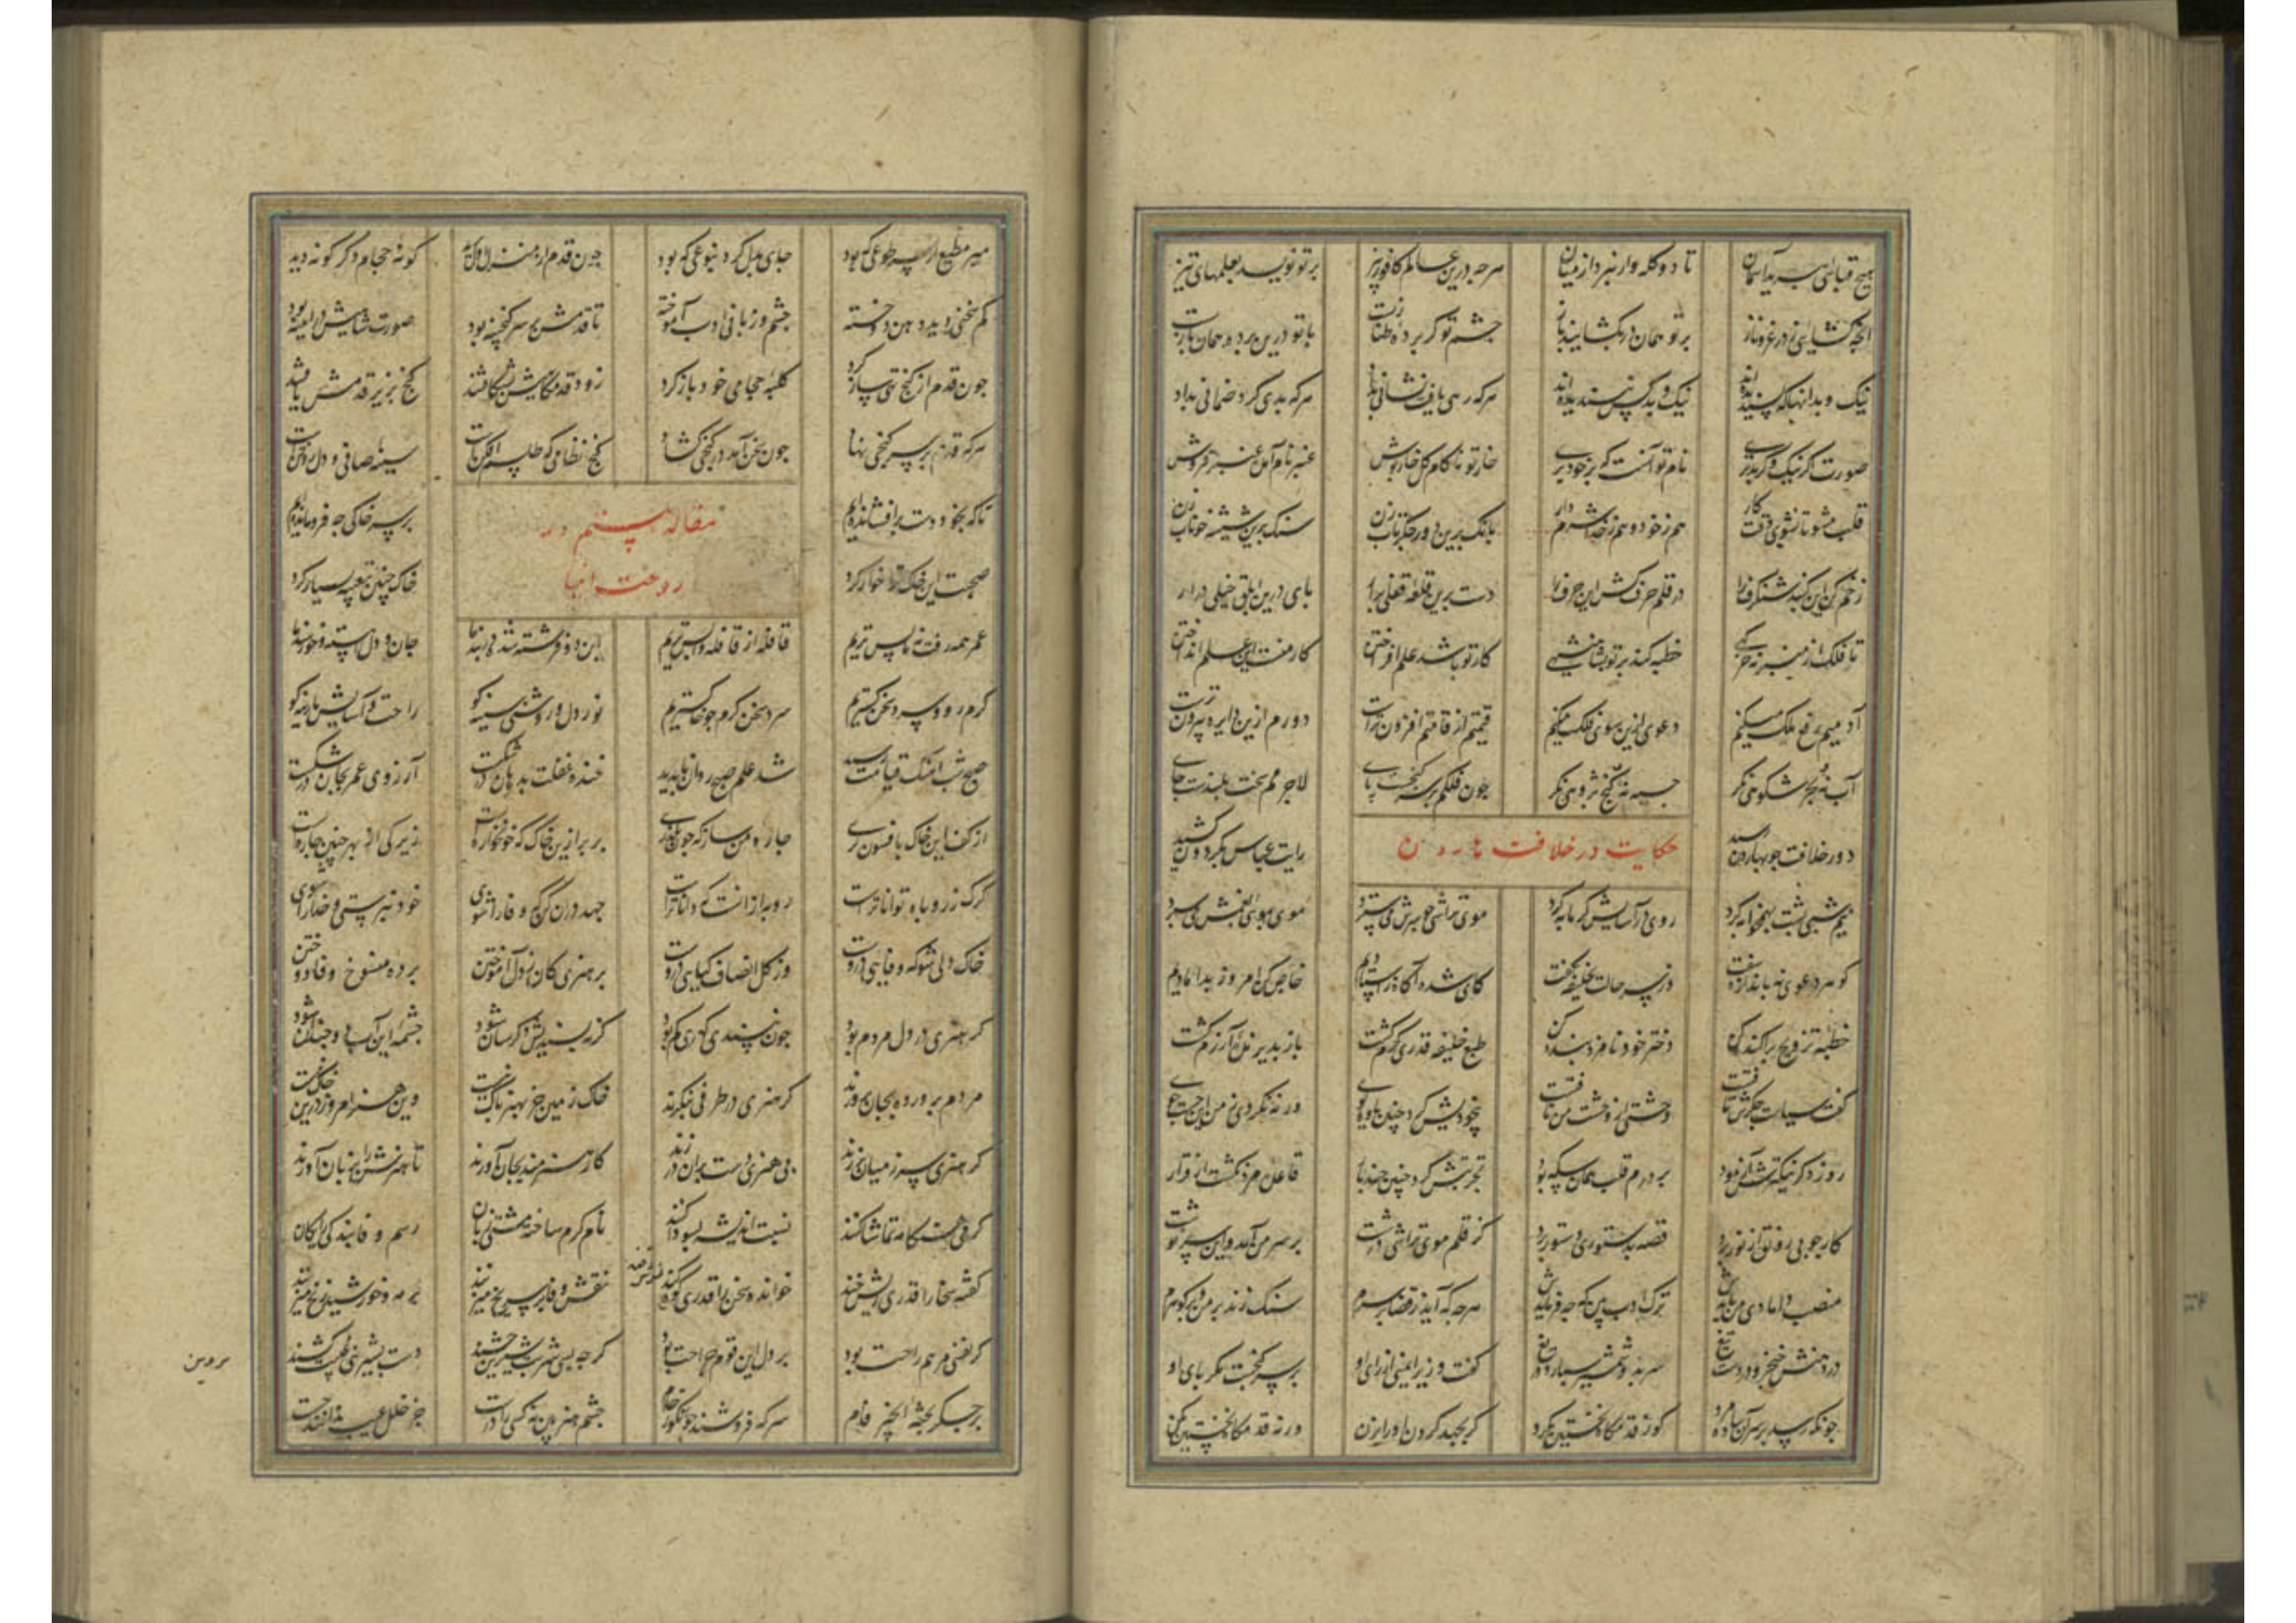 هیچ قبائی نبرید آسمان تا دو کله وار نبرد از میان هرچه درین عالم کافور بیز بر تو نویسد بقلمهای تیز
انچه گشائی ز در عز و ناز بر تو همان در بگشایند باز چشم تو گر پرده طنازیست با تو درین پرده همان بازیست
نیک و بد انها که پسندیده اند نیک و بد کس نپسندیده اند هر که رهی یافت نشانی بداد هر که بدی کرد ضمانی بداد
صورت گر نیک و گر بد بری نام تو آنست که بر خود بری خار تو ناکام گل خارپوش عنبر نام آمده عنبر فروش
قلب مشو تا نشوی وقت کار هم ز خود و هم ز خدا شرم دار بانک برین دور جگر تاب زن سنک برین شیشه خوناب زن
زخم کن این گنبد شنگرف را در قلم حرف کش این حرف را دست برین قلعه قلعی برآر پای درین ابلق ختلی درآر
تا فلک از منبر نه خرگهی خطبه کند بر تو بشاهنشهی کار تو باشد علم افراختن کار منست این علم انداختن
آدمیم رنج ملک میکنم دعوی ازین سوی فلک میکنم قیمتم از قامتم افزون ترست دورم ازین دایره بیرون ترست
آب نه و بحر شکوهی نگر جیب نه و گنج پژوهی نگر چون فلکم بر سر گنجست پای لاجرمم سخت بلندست جای
دور خلافت چو بهارون رسید رایت عباس بگردون کشید
حکایت در خلافت هارون
نیم شبی پشت بهمخوابه کرد روی در آسایش گرمابه کرد موی تراشی چو سرش می سترد موی بموی غمش می سپرد
گوهر دعوی نه باندازه سفت در سر حالت بخلیفه گفت کای شده آگاه ز استادیم خاص کن امروز بدامادیم
خطبه تزویج پراکنده کن دختر خود نامزد بنده کن طبع خلیفه قدری گرم گشت باز پذیرنده آزرم گشت
گفت سیاست جگرش تافتست وحشتی از دهشت من یافتست بیخودیش کرد چنین یاوه گوی ورنه نکردی ز من این جست جوی
روز دگر نیکترش آزمود بر درم قلب همان سکه بود تجربتش کرد چنین چند بار قاعده مرد نگشت از قرار
کار چو بی رونقی از نور برد قصه بدستوری دستور برد کز قلم موی تراشی درشت بر سر من آمد و این سرنوشت
منصب دامادی من بایدش ترک ادب بین که چه فرمایدش هرچه که آید ز قضا بر سرم سنک زند بر من و بر گوهرم
در دهنش خنجر و در دست تیغ سر بدو شمشیر سپارد دریغ گفت وزیر ایمنی از رای او بر سر گنجست مگر پای او
چونکه رسد بر سر آن ساده مرد گو ز قدمگاه نخستین بگرد گر بجهد گردن او را بزن ورنه قدمگاه نخستین بکن
میر مطیع از سر طوعی که بود جای بدل کرد بنوعی که بود چون قدم از منزل اول برید گونه حجام دگر گونه دید
کم سخنی دید دهن دوخته چشم و زبانی ادب آموخته تا قدمش بر سر گنجینه بود صورت شاهیش در آیینه بود
چون قدم از گنج تهی ساز کرد کلبه حجامی خود باز کرد زود قدمگاهش بشکافتند گنج بزیر قدمش یافتند
هر که قدم بر سر گنجی نهاد چون بسخن آمد در گنجی گشاد گنج نظامی که طلسم افکنست سینه صافی و دل روشنست
مقاله بیستم در
رعونت ابنا
تا که بخود دست برافشانده ایم بر سر خاکی چه فرومانده ایم
صحبت این خاک ترا خوار کرد خاک چنین تعبیه بسیار کرد
عمر همه رفت و ببس تریم قافله از قافله واپس تریم این دو فرشته شده در بند ما جان و دل بسته و خرسند ما
گرم رو و سرد سخن گستریم سرد سخن گرم چو خاکستریم نور دل و روشنی سینه کو راحت و آسایش پارینه کو
صبح شب آهنگ قیامت دمید شد علم صبح روان ناپدید خنده غفلت بدهان درشکست آرزوی عمر بجان درشکست
از کف این خاک بافسونگری چاره مساز که چون بگذری بر پر ازین خاک که خونخواره ایست زیرکی از بهر چنین چاره ایست
گرگ ز روباه تواناترست روبه از انست که داناترست جهد در آن کن که وفا را شوی خود نپرستی و خدا را شوی
خاک دلی شو که وفائی دروست وز گل انصاف گیاهی دروست بر هنری کان ز دل آموختن برده منسوخ وفا دوختن
گر هنری در دل مردم بود چون بپسندی گهری کم بود گر بپسندیش دگرسان شود چشمه این آب دو چندان شود
مردم پرورده بجان پرورند گر هنری در طرفی بنگرند خاک زمین جز بهنر پاک نیست وین هنر امروز درین خاک نیست
گر هنری سر ز میان برزند بی هنری دست بدان درزند کار هنرمند بجان آورند تا هنرش را بزیان آورند
گر هنر نگاه تماشا کنند نسبت اندیشه بسودا کنند نام کرم ساخته مشتی زیان رسم وفا بندگی رایگان
گفته سخا را قدری ریش خند خوانده سخن را قدری گنده نقش وفا بر سر یخ میزنند بر مه و خورشید زنخ میزنند
گر نفسی مرهم راحت بود بر دل این قوم جراحت بود گر چه بسی شربت شیرین چشند دست بشیرینی کشند
بر جگر پخته انجیر فام سرکه فروشند چو انگور خام چشم هنر بین نه کسی را درست جز خلل و عیب ندانند جست